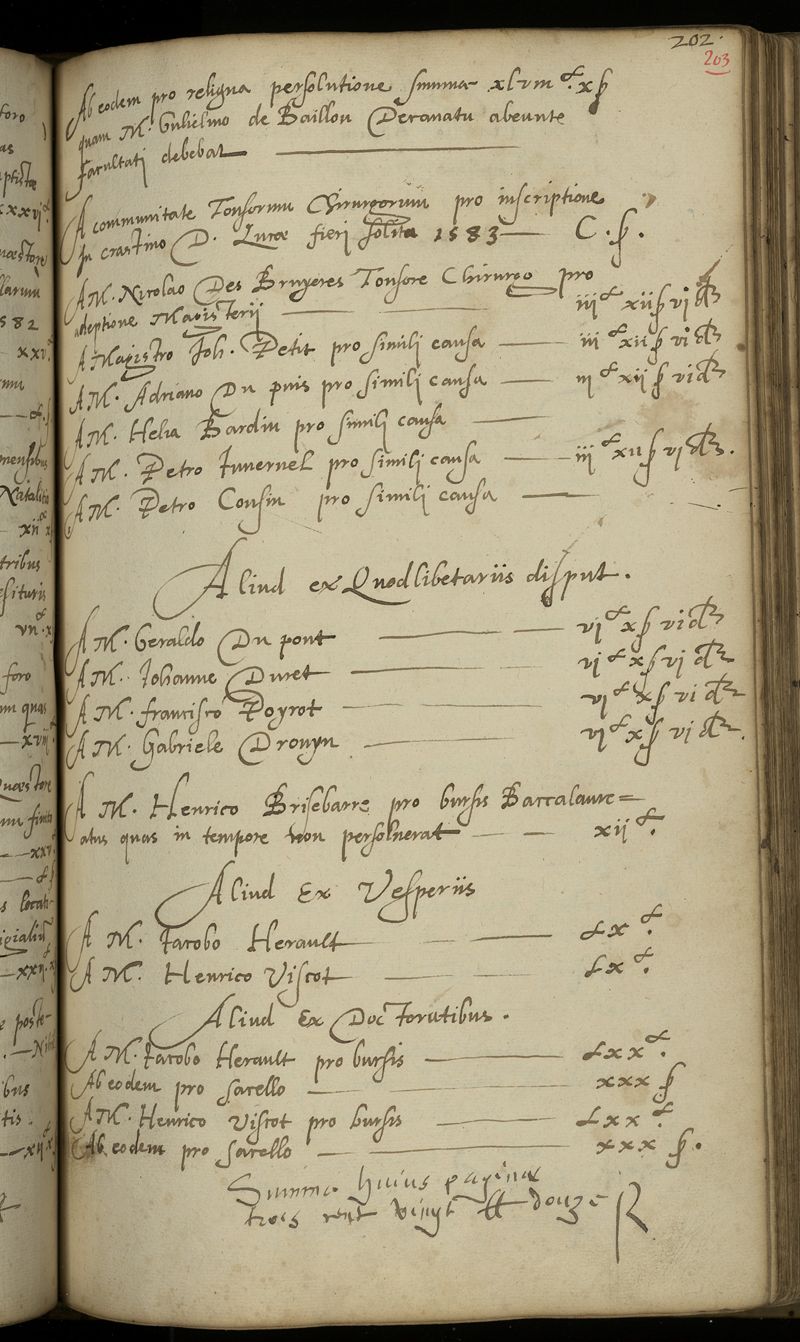 202.
203
Ab eodem pro religua persolutione summa xlvııı ₶ x ß
quam M. Gulielmo de Baillou Decanatu abeunte
facultati debebat
A communitate Tonsorum Chirurgorum pro inscriptione
In crastino D. Lucæ fieri solita 1583 C. ß.
A M. Nicolao Des Bruyeres Tonsore Chirurgo pro
adeptione Magisterij iij ₶ xij ß vj d
A Magistro Joh. Petit pro simili causa iij ₶ xij ß vj d
A M. Adriano Du puis pro simili causa iij ₶ xij ß vj d
A M. Helia Bardin pro simili causa
A M. Petro Juvernel pro simili causa iij ₶ xij ß vj d.
A M. Petro Cousin pro simili causa
Aliud ex Quodlibetariis disput.
A M. Geraldo Du pont vj ₶ x ß vj d
A M. Johanne Duret vj ₶ x ß vj d
A M. francisco Poyrot vj ₶ x ß vj d
A M. Gabriele Drouyn vj ₶ x ß vj d.
A M. Henrico Brisebarre pro bursis Baccalaure=
atus quas in tempore non persolverat xij ₶.
Aliud Ex Vesperiis
A M. Jacobo Herault Lx ₶.
A M. Henrico Viscot Lx ₶.
Aliud Ex Doctoratibus.
A M. Jacobo Herault pro bursis Lxx ₶.
Ab eodem pro sacello xxx ß
A M. Henrico Viscot pro bursis Lxx ₶.
Ab eodem pro sacello xxx ß.
Summa huius paginæ
trois cent vingt ₶ douze ß